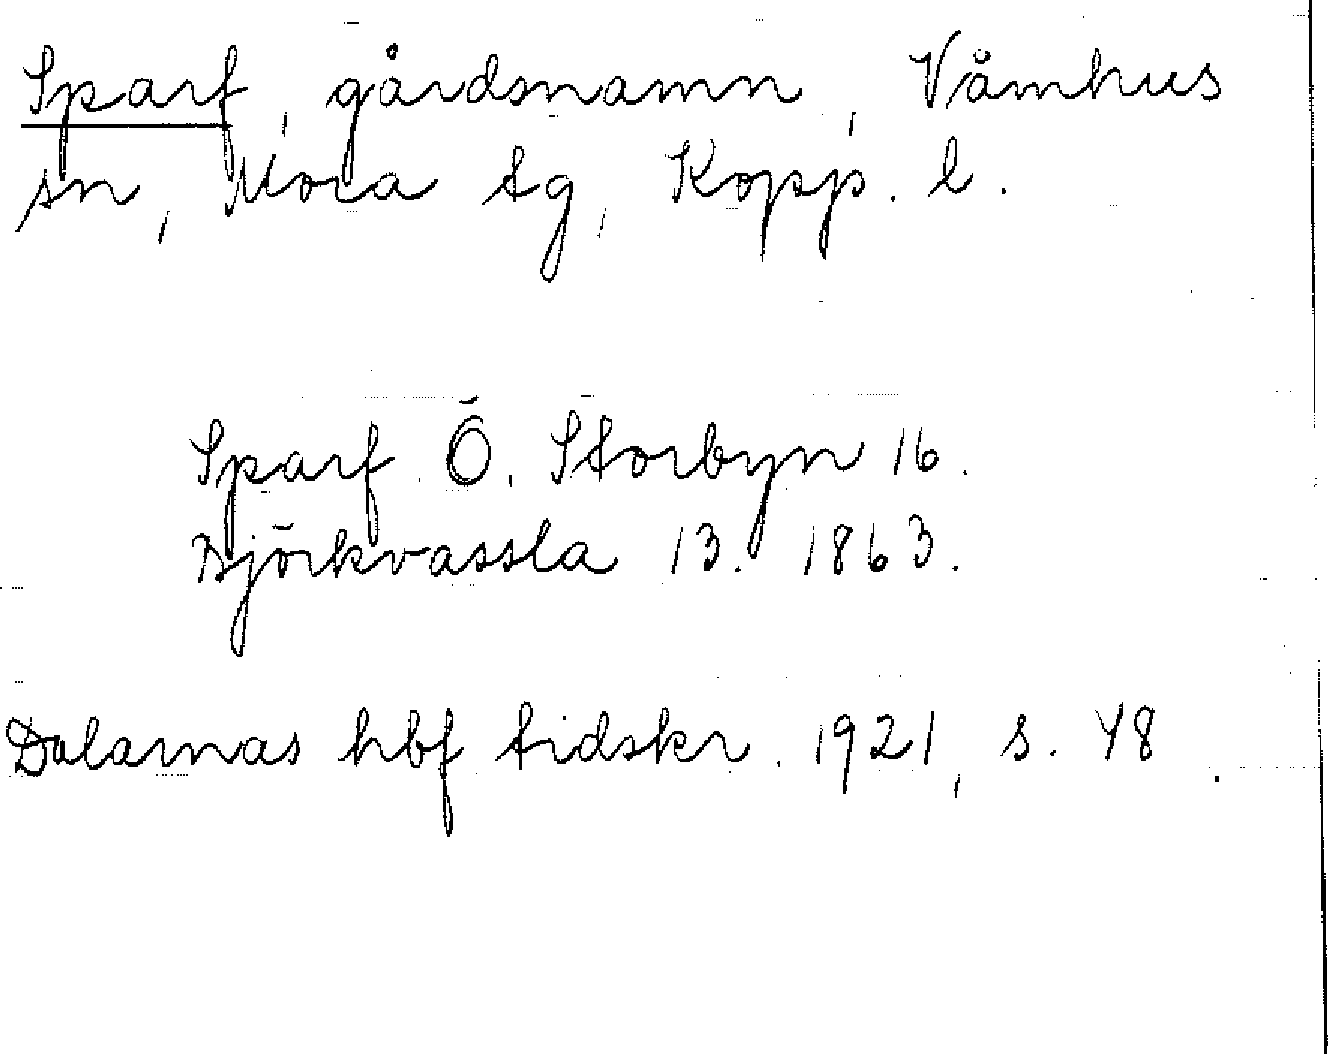 Sparf, gårdsnamn, Våmhus
sn, Mora tg, Kopp. l.
Sparf Ö. Storbyn 16.
Björkvassla 13. 1863.
Dalarnas hbf tidskr. 1921, s. 48.